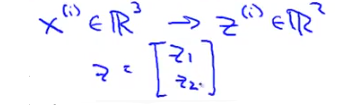 x^(i) ∈ ℝ^3 → z^(i) ∈ ℝ^2
z = [z_1
z_2]